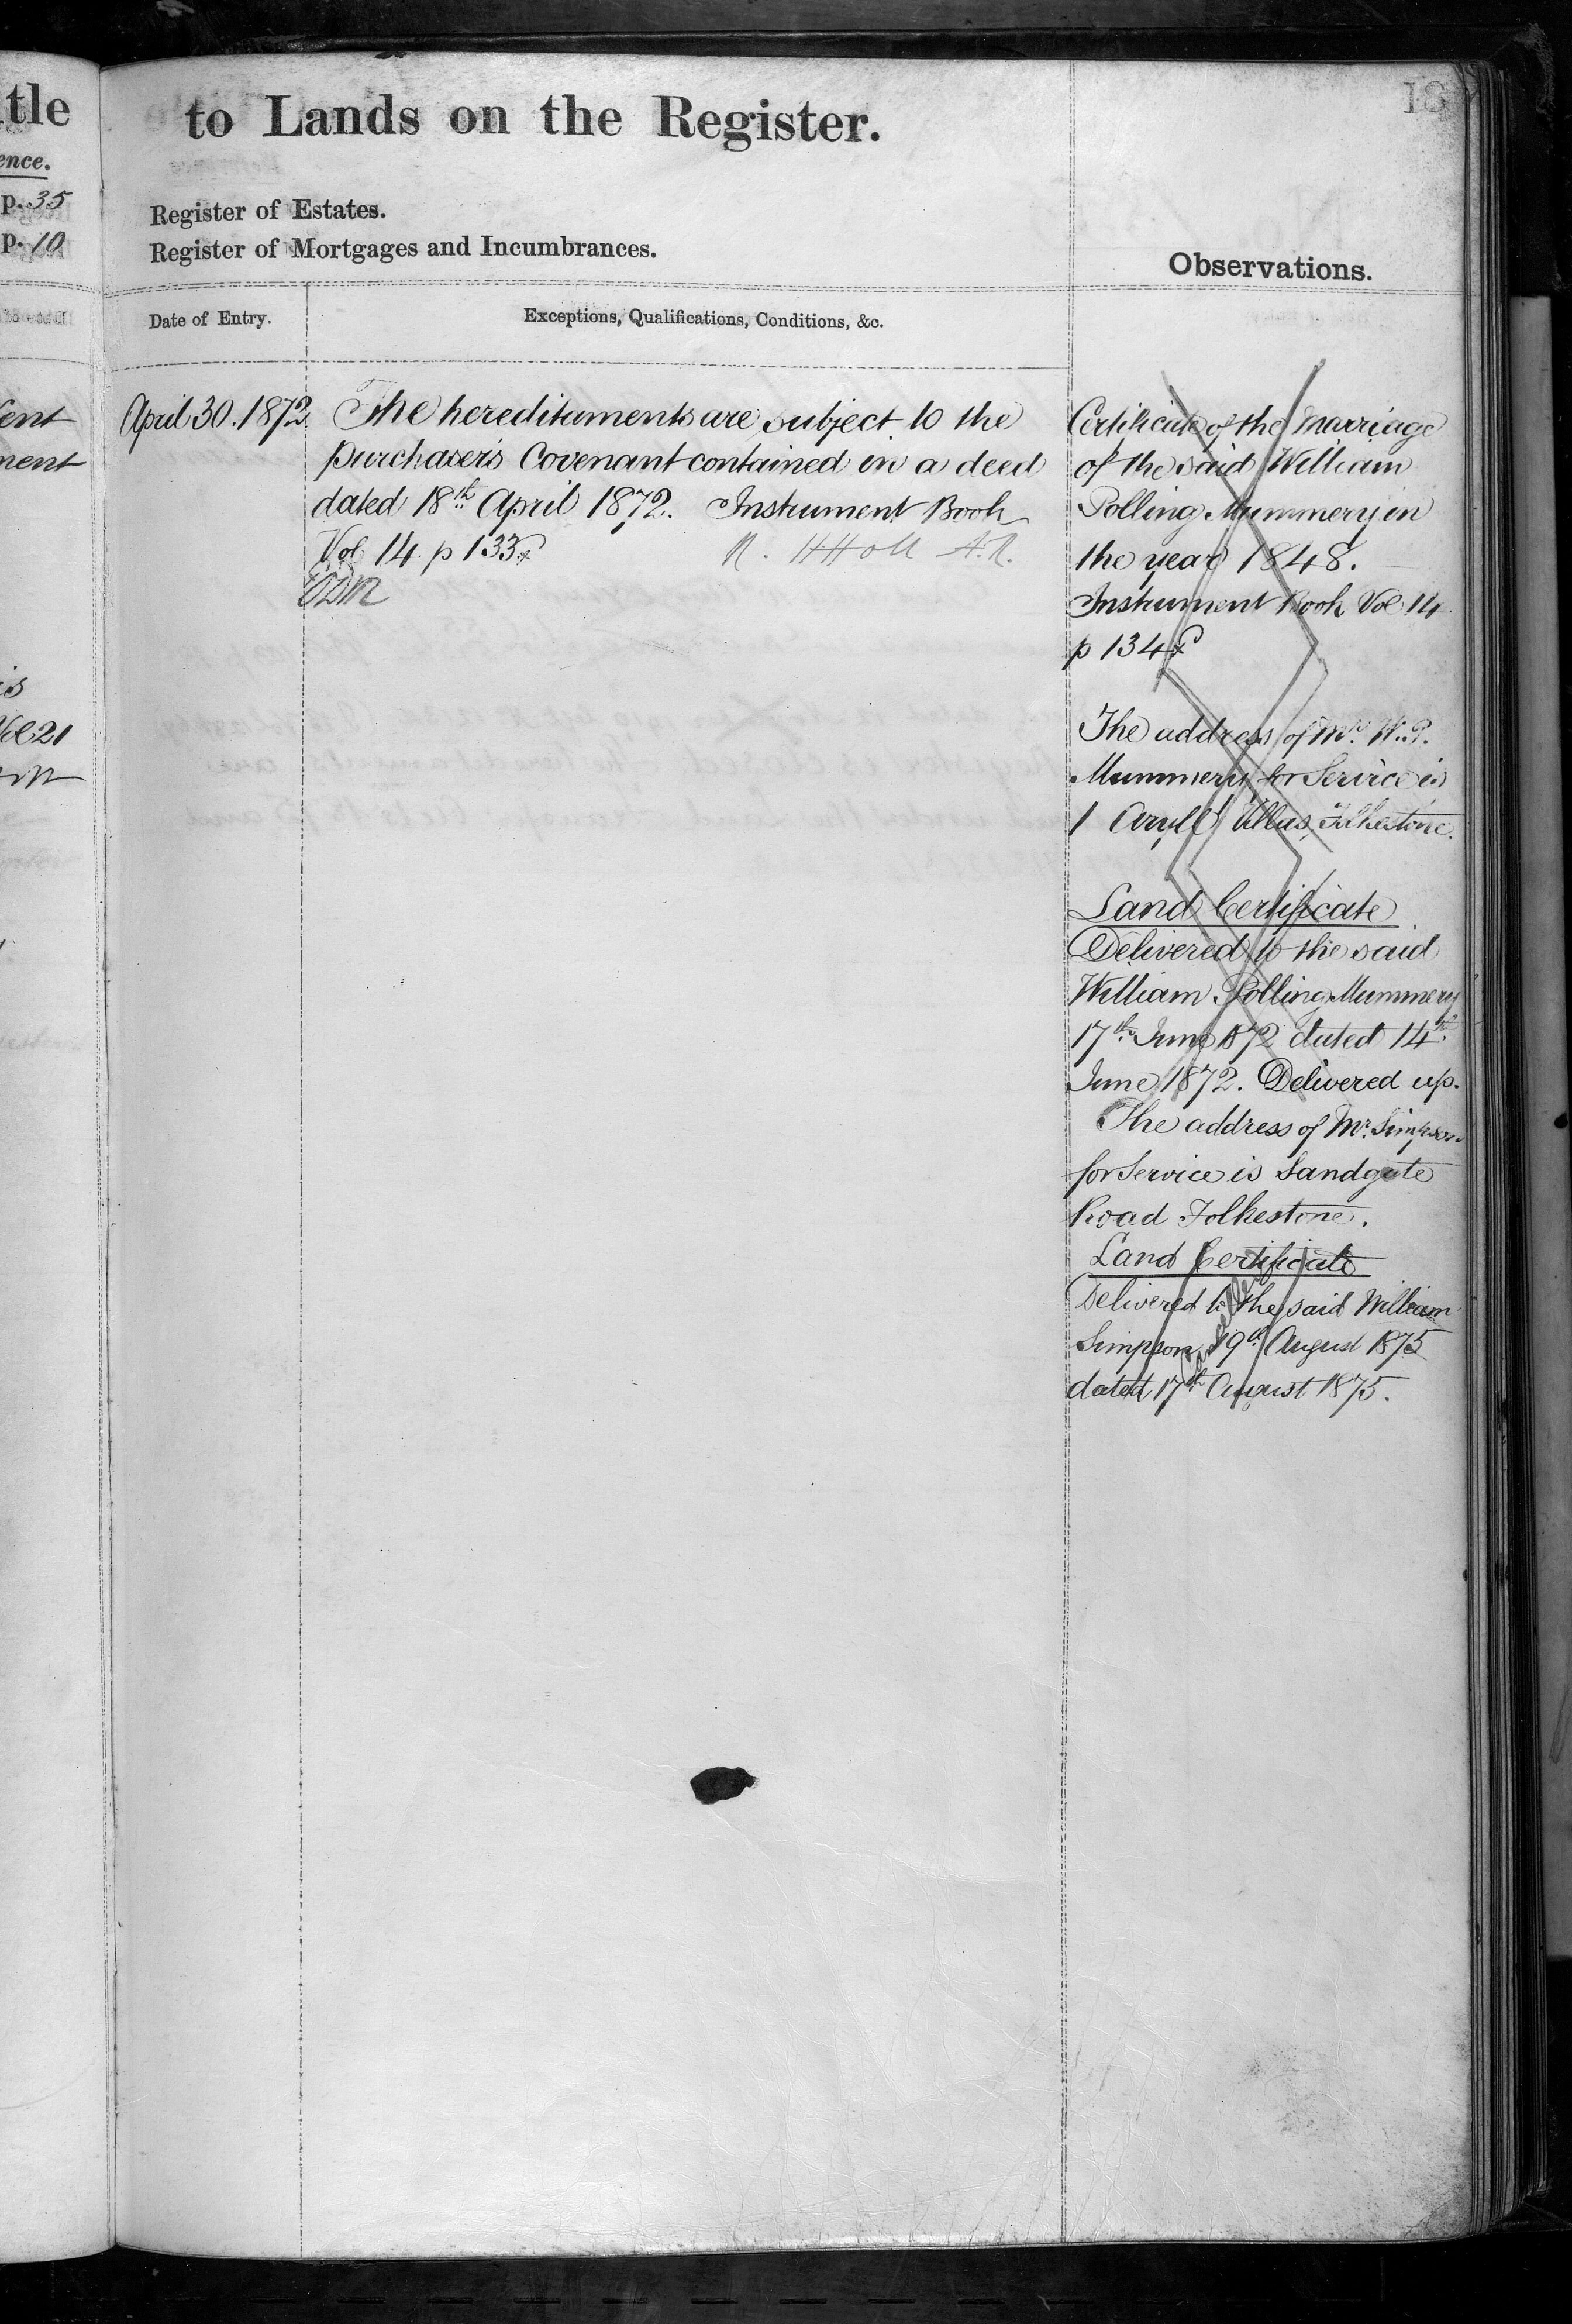 tle
ence.
p. 35
p. 10
ent
ment
is
Vol 21
to Lands on the Register.
18
Register of Estates.
Register of Mortgages and Incumbrances.
Observations.
Date of Entry.
Exceptions, Qualifications, Conditions, &c.
April 30. 1872.
The hereditaments are subject to the
purchaser's Covenant contained in a deed
dated 18th April 1872. Instrument Book
Vol 14 p 133
Certificate of the marriage
of the said William
Polling Mummery in
the year 1848.
Instrument Book Vol 14
p 134
The address of Mr. W. P.
Mummery for Service is
1 Argyll Villas, Folkestone.
Land Certificate
Delivered to the said
William Polling Mummery
17th June 1872 dated 14th
June 1872. Delivered up.
The address of Mr. Simpson
for Service is Sandgate
Road Folkestone.
Land Certificate
Delivered to the said William
Simpson 19th August 1875
dated 17th August 1875.